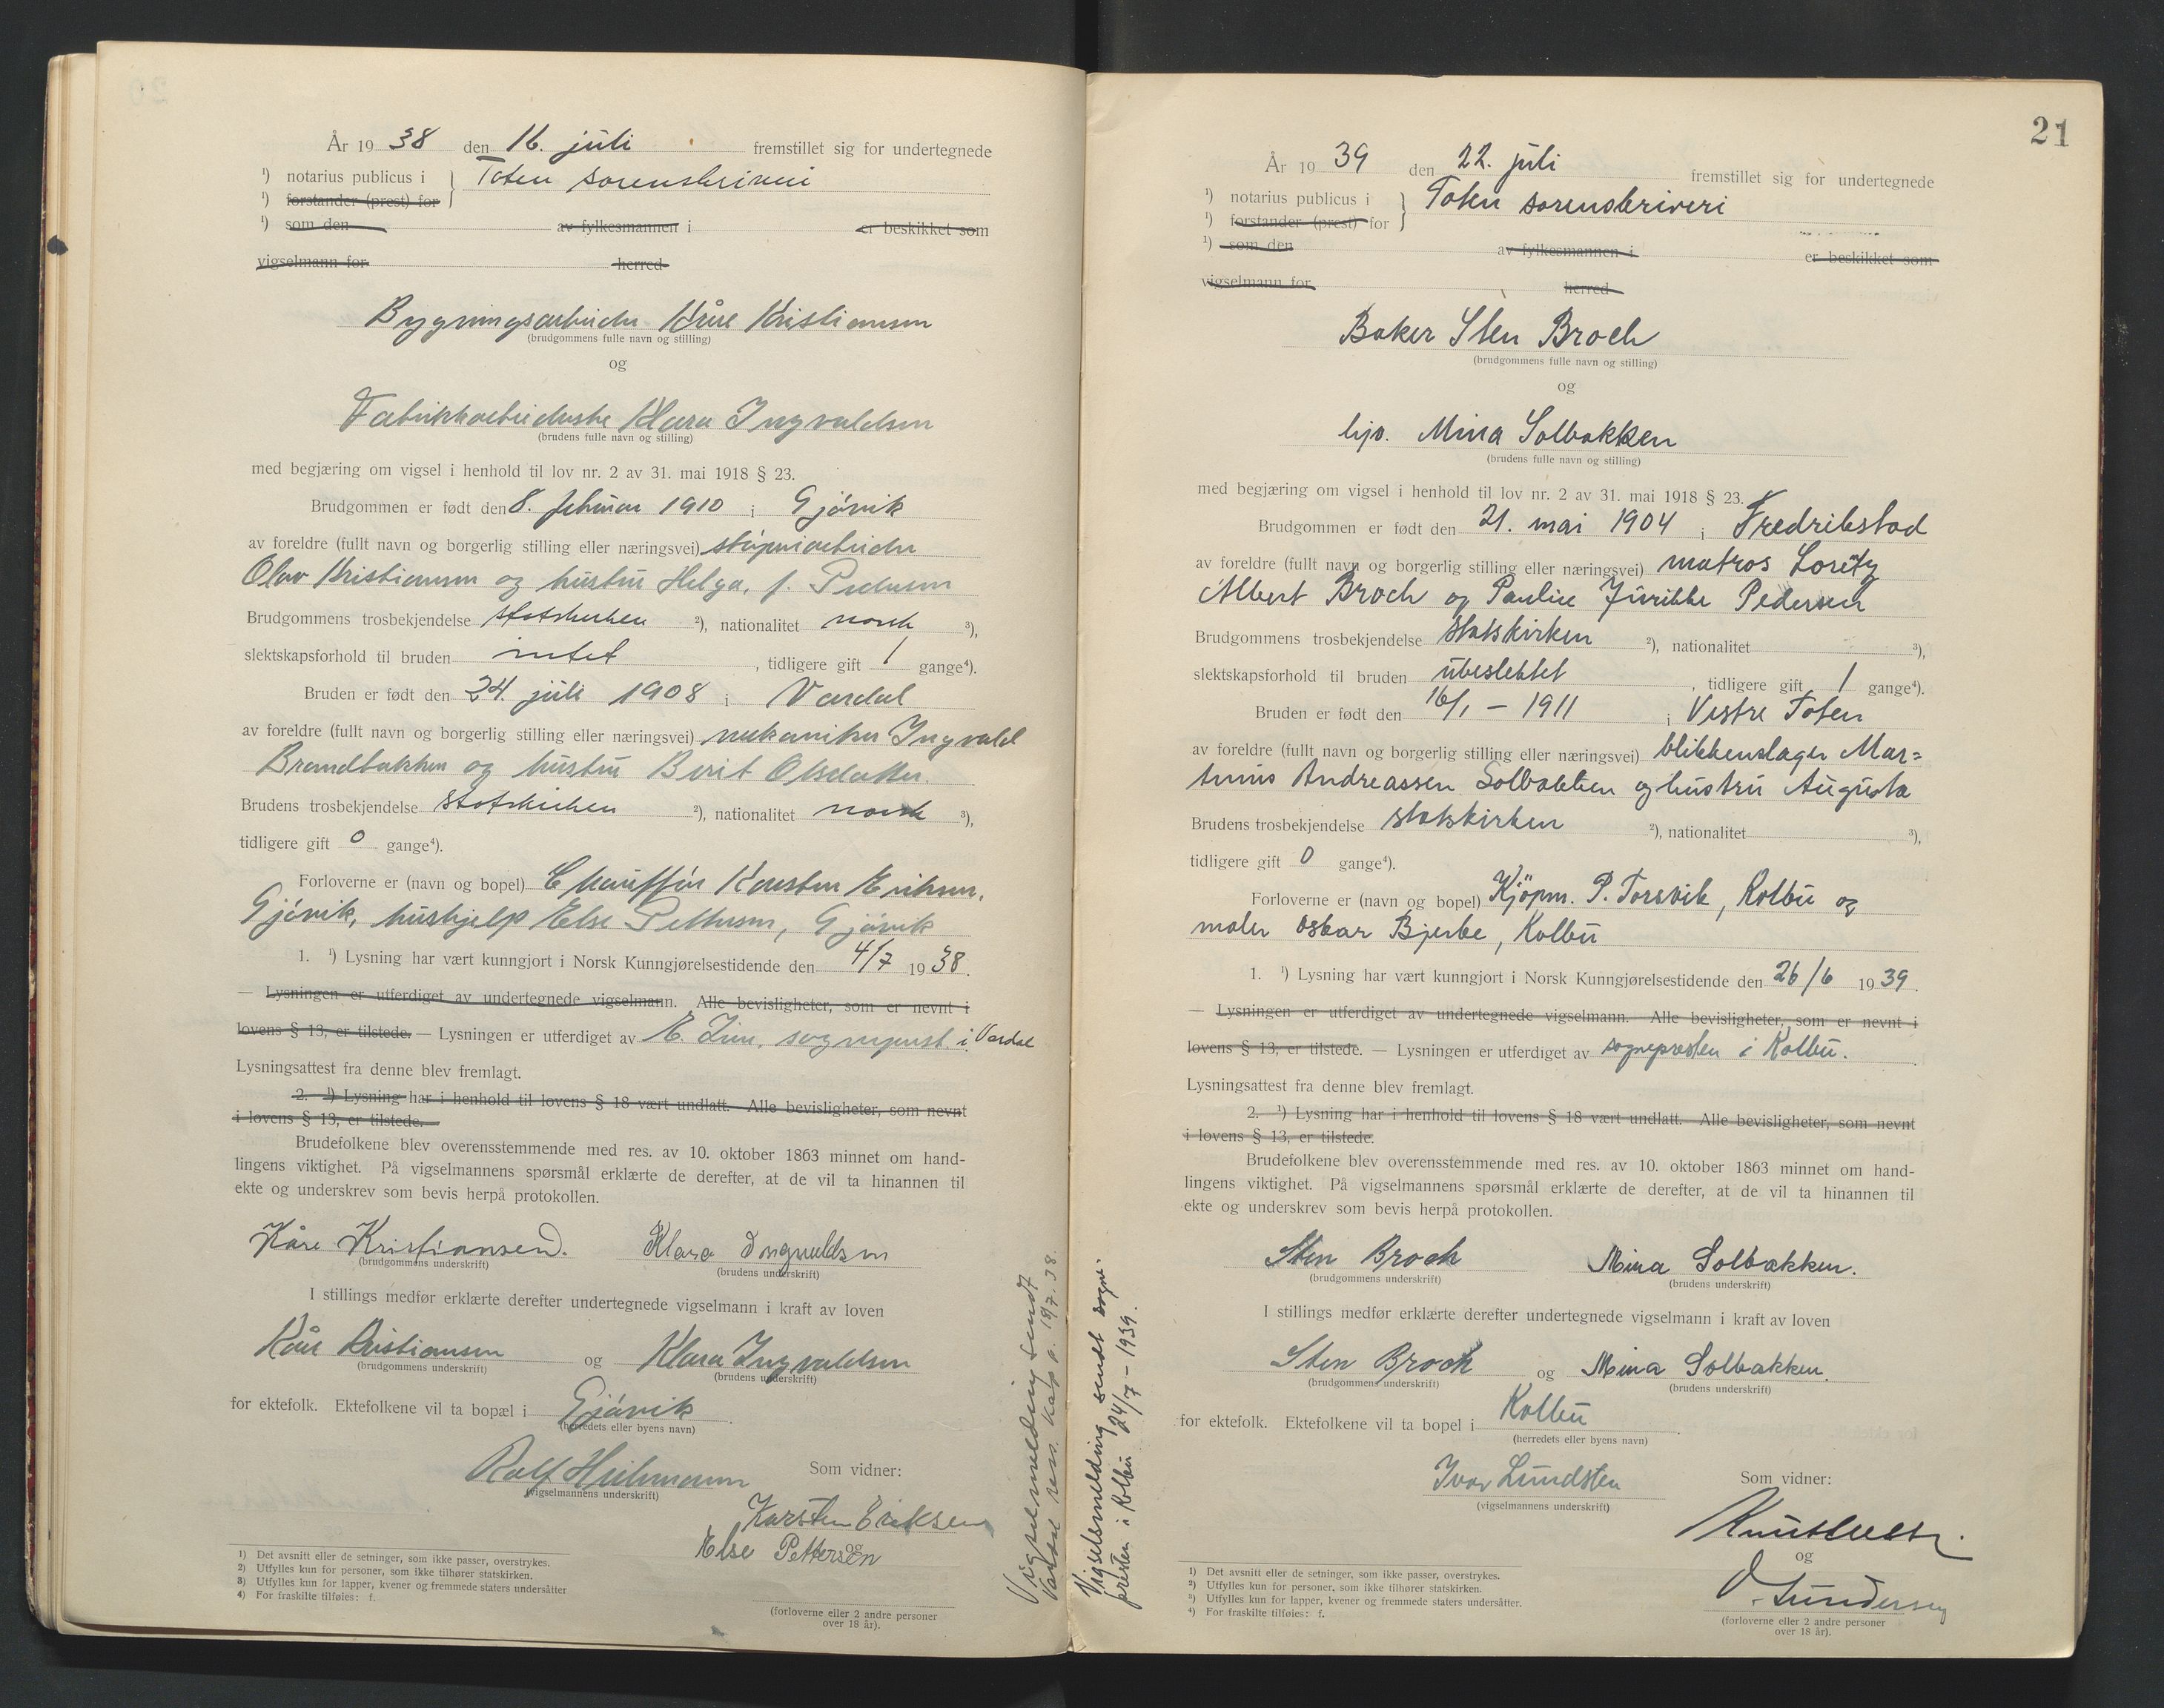 År 19 38 den 16. juli fremstillet sig for undertegnede
¹) notarius publicus i } Toten sorenskriveri
¹) forstander (prest) for
¹) som den av fylkesmannen i er beskikket som
vigselmann for herred
Bygningsarbeider Kåre Kristiansen
(brudgommens fulle navn og stilling)
og
Fabrikkarbeiderske Klara Ingvaldsen
(brudens fulle navn og stilling)
med begjæring om vigsel i henhold til lov nr. 2 av 31. mai 1918 § 23.
Brudgommen er født den 8. februar 1910 i Gjøvik
av foreldre (fullt navn og borgerlig stilling eller næringsvei) støperiarbeider
Olav Kristiansen og hustru Helga, f. Pedersen
Brudgommens trosbekjendelse statskirken ²), nationalitet norsk ³),
slektskapsforhold til bruden intet, tidligere gift 1 gange⁴).
Bruden er født den 24. juli 1908 i Vardal
av foreldre (fullt navn og borgerlig stilling eller næringsvei) mekaniker Ingvald
Brandbakken og hustru Berit Olsdatter.
Brudens trosbekjendelse statskirken ²), nationalitet norsk ³),
tidligere gift 0 gange⁴).
Forloverne er (navn og bopel) Chauffør Karsten Eriksen,
Gjøvik, hushjelp Else Pettersen, Gjøvik
1. ¹) Lysning har vært kunngjort i Norsk Kunngjørelsestidende den 4/7 1938.
— Lysningen er utferdiget av undertegnede vigselmann. Alle bevisligheter, som er nevnt i
lovens § 13, er tilstede. — Lysningen er utferdiget av E. sogneprest i Vardal
Lysningsattest fra denne blev fremlagt.
2. ¹) Lysning har i henhold til lovens § 18 vært undlatt. Alle bevisligheter, som nevnt
i lovens § 13, er tilstede.
Brudefolkene blev overensstemmende med res. av 10. oktober 1863 minnet om hand-
lingens viktighet. På vigselmannens spørsmål erklærte de derefter, at de vil ta hinannen til
ekte og underskrev som bevis herpå protokollen.
Kåre Kristiansen. Klara Ingvaldsen
(brudgommens underskrift) (brudens underskrift)
I stillings medfør erklærte derefter undertegnede vigselmann i kraft av loven
Kåre Kristiansen og Klara Ingvaldsen
(brudgommens underskrift) (brudens underskrift)
for ektefolk. Ektefolkene vil ta bopæl i Gjøvik.
(herredets eller byens navn)
Rolf Som vidner:
(vigselmannens underskrift)
Karsten Eriksen
og
Else Pettersen
¹) Det avsnitt eller de setninger, som ikke passer, overstrykes.
²) Utfylles kun for personer, som ikke tilhører statskirken.
³) Utfylles kun for lapper, kvener og fremmede staters undersåtter
⁴) For fraskilte tilføies: f.
(forloverne eller 2 andre personer
over 18 år).
Vigselsmelding sendt
Vardal 18/7. 38.
21
År 19 39 den 22. juli fremstillet sig for undertegnede
¹) notarius publicus i } Toten sorenskriveri
¹) forstander (prest) for
¹) som den av fylkesmannen i er beskikket som
vigselmann for herred
Baker Sten Broch
(brudgommens fulle navn og stilling)
og
hjv. Mina Solbakken
(brudens fulle navn og stilling)
med begjæring om vigsel i henhold til lov nr. 2 av 31. mai 1918 § 23.
Brudgommen er født den 21. mai 1904 i Fredrikstad
av foreldre (fullt navn og borgerlig stilling eller næringsvei) matros Lorentz
Albert Broch og Pauline Pedersen
Brudgommens trosbekjendelse statskirken ²), nationalitet ³),
slektskapsforhold til bruden ubeslektet, tidligere gift 1 gange⁴).
Bruden er født den 16/1 – 1911 i Vestre Toten
av foreldre (fullt navn og borgerlig stilling eller næringsvei) blikkenslager Mar=
tinius Andreassen Solbakken og hustru Augusta
Brudens trosbekjendelse statskirken ²), nationalitet ³),
tidligere gift 0 gange⁴).
Forloverne er (navn og bopel) Kjöpm. P. Torsvik, Kolbu og
maler Oskar Bjerke, Kolbu
1. ¹) Lysning har vært kunngjort i Norsk Kunngjørelsestidende den 26/6 1939.
— Lysningen er utferdiget av undertegnede vigselmann. Alle bevisligheter, som er nevnt i
lovens § 13, er tilstede. — Lysningen er utferdiget av sognepresten i Kolbu.
Lysningsattest fra denne blev fremlagt.
2. ¹) Lysning har i henhold til lovens § 18 vært undlatt. Alle bevisligheter, som nevnt
i lovens § 13, er tilstede.
Brudefolkene blev overensstemmende med res. av 10. oktober 1863 minnet om hand-
lingens viktighet. På vigselmannens spørsmål erklærte de derefter, at de vil ta hinannen til
ekte og underskrev som bevis herpå protokollen.
Sten Broch Mina Solbakken.
(brudgommens underskrift) (brudens underskrift)
I stillings medfør erklærte derefter undertegnede vigselmann i kraft av loven
Sten Broch og Mina Solbakken.
(brudgommens underskrift) (brudens underskrift)
for ektefolk. Ektefolkene vil ta bopel i Kolbu.
(herredets eller byens navn)
Ivar Lundsten Som vidner:
(vigselmannens underskrift)
og
¹) Det avsnitt eller de setninger, som ikke passer, overstrykes.
²) Utfylles kun for personer, som ikke tilhører statskirken.
³) Utfylles kun for lapper, kvener og fremmede staters undersåtter.
⁴) For fraskilte tilføies: f.
(forloverne eller 2 andre personer
over 18 år).
Vigselsmelding sendt sogne-
presten i Kolbu 24/7 – 1939.